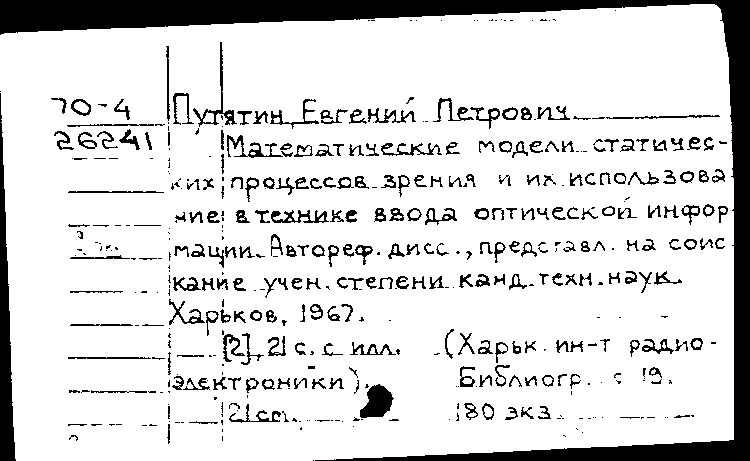 70-4 Путятин, Евгений Петрович.
26241 Математические модели статичес-
ких процессов зрения и их использова
ние в технике ввода оптической инфор
мации. Автореф. дисс., представл. на соис
кание учен. степени канд. техн. наук.
Харьков, 1967.
[2], 21 с. с илл. (Харьк. ин-т радио-
электроники). Библиогр. с 19.
21 cm. 180 экз.